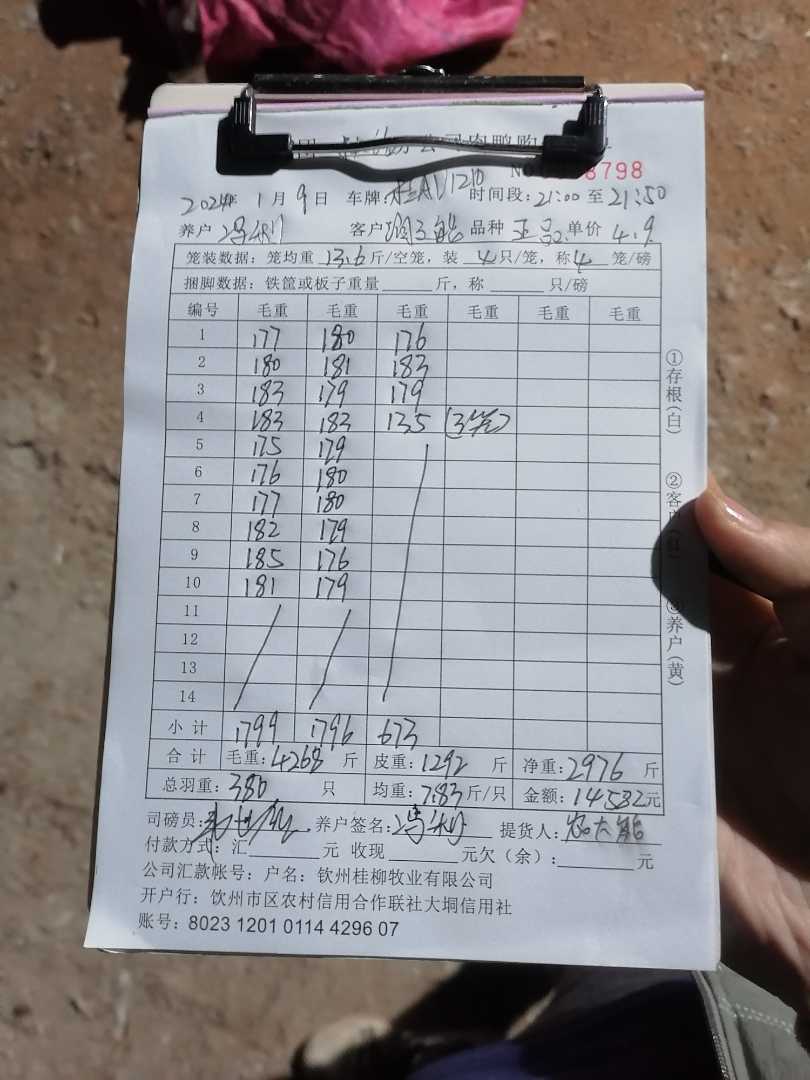 公司肉鸭购
No 8798
2024年 1月 9日 车牌: 桂AV1210 时间段: 21:00 至 21:50
养户 冯利 客户 品种 单价 4.9
笼装数据: 笼均重 13.6 斤/空笼, 装 4 只/笼, 称 4 笼/磅
捆脚数据: 铁筐或板子重量 斤, 称 只/磅
编号 毛重 毛重 毛重 毛重 毛重 毛重
1 177 180 176
2 180 181 183
3 183 179 179
4 183 183 135 (3笼)
5 175 179
6 176 180
7 177 180
8 182 179
9 185 176
10 181 179
11
12
13
14
小计 1799 1796 673
合计 毛重: 4268 斤 皮重: 1292 斤 净重: 2976 斤
总羽重: 380 只 均重: 7.83 斤/只 金额: 14582 元
司磅员: 养户签名: 冯利 提货人:
付款方式: 汇 元 收现 元欠(余): 元
公司汇款帐号: 户名: 钦州桂柳牧业有限公司
开户行: 钦州市区农村信用合作联社大垌信用社
账号: 8023 1201 0114 4296 07
①存根(白)
②客户(红)
③养户(黄)